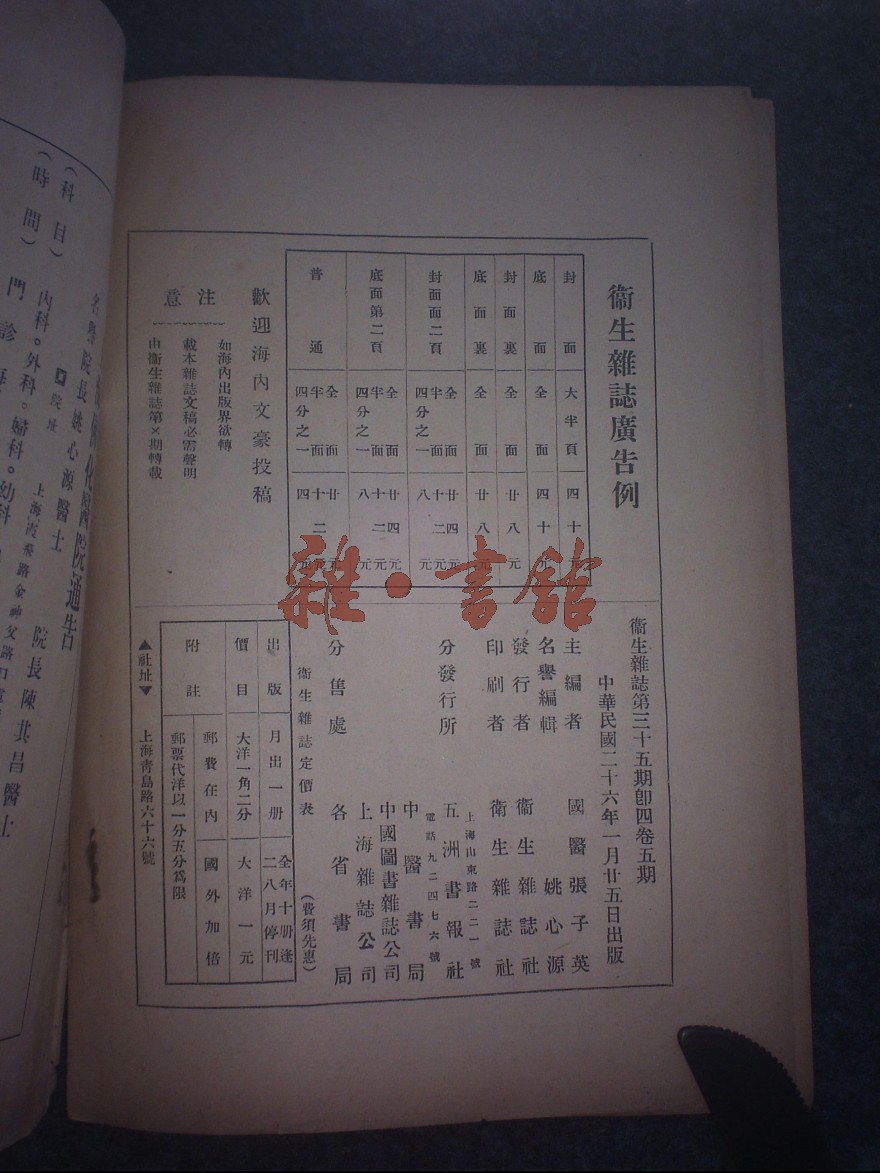 衞生雜誌廣告例
封面 大半頁 四十元
底面 全面 四十元
封面裏 全面 廿八元
底面裏 全面 廿八元
封面面二頁 全面 廿四元
半面 十二元
四分之一 八元
底面第二頁 全面 廿四元
半面 十二元
四分之一 八元
普通 全面 廿元
半面 十二元
四分之一 四元
歡迎海內文豪投稿
注意
如海內出版界欲轉
載本雜誌文稿必需聲明
由衞生雜誌第×期轉載
衞生雜誌第三十五期卽四卷五期
中華民國二十六年一月廿五日出版
主編者 國醫張子英
名譽編輯 姚心源
發行者 衞生雜誌社
印刷者 衞生雜誌社
上海山東路二二一號
分發行所 五洲書報社
電話九二四七六號
中醫書局
中國圖書雜誌公司
上海雜誌公司
分售處 各省書局
衞生雜誌定價表 (費須先惠)
出版 月出一册 全年十册逢
二八月停刊
價目 大洋一角二分 大洋一元
附註 郵費在內 國外加倍
郵票代洋以一分五分爲限
▲社址▼ 上海靑島路六十六號
雜·書館
醫院通告
院長陳其昌醫士
名譽院長姚心源醫士
院址 上海霞飛路金神父路口
(科目) 內科。外科。婦科。幼科
(時間) 門診